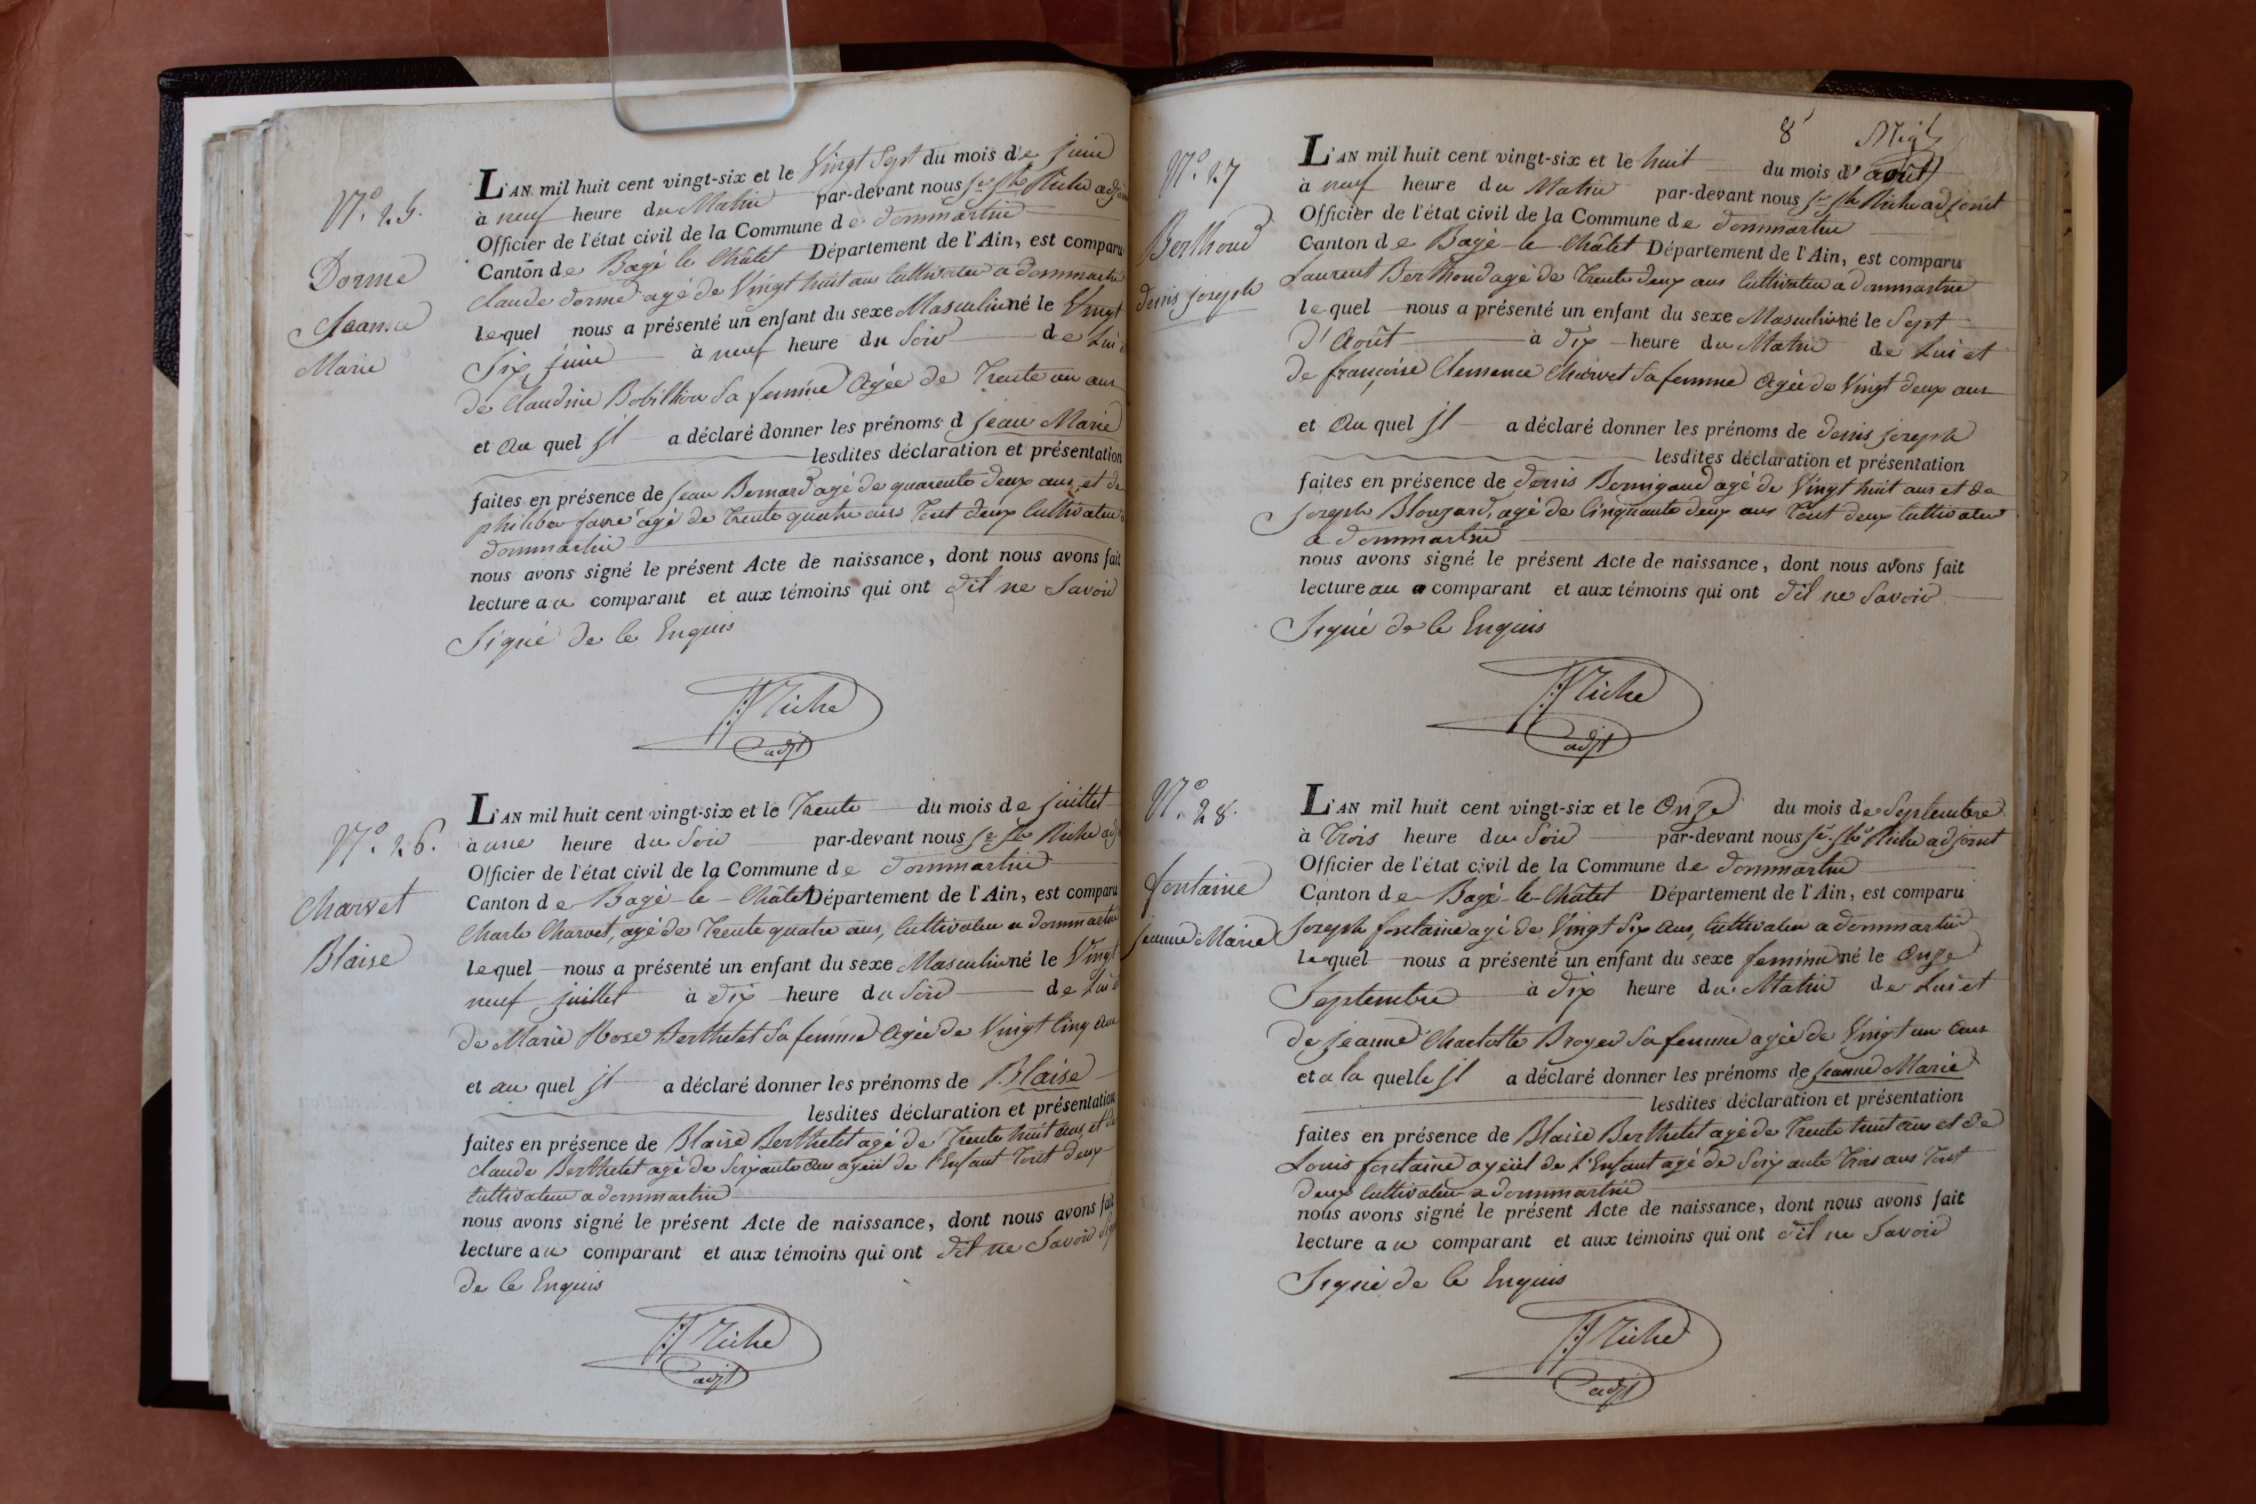 N.° 25.
Dorme
Jeanu
Marie
L'AN mil huit cent vingt-six et le Vingt Sept du mois de juin
à neuf heure du Matin par-devant nous Riche adj
Officier de l'état civil de la Commune de dommartin
Canton de Bagé le Châtel Département de l'Ain, est comparu
Claude dorme agé de Vingt huit ans Cultivateu a dommartin
lequel nous a présenté un enfant du sexe Masculin né le Vingt
Six juin à neuf heure du Soir de Lui
de Claudine Bobillion Sa femme Agée de Trente un ans
et au quel jl a déclaré donner les prénoms d jeau Marie
lesdites déclaration et présentation
faites en présence de jean Bernard agé de quarente deux ans et de
philiber favre agé de Trente quatre ans Tout deux Cultivateu
dommartin
nous avons signé le présent Acte de naissance, dont nous avons fait
lecture au comparant et aux témoins qui ont dit ne Savoir
Signé de le Enquis
Riche
adjt
N.° 26.
Charvet
Blaise
L'AN mil huit cent vingt-six et le Trente du mois de juillet
à une heure du Soir par-devant nous Riche adj
Officier de l'état civil de la Commune de dommartin
Canton de Bagé-le-Châtel Département de l'Ain, est comparu
Charle Charvet, agé de Trente quatre ans, Cultivateu a dommartin
lequel nous a présenté un enfant du sexe Masculin né le Vingt
neuf juillet à dix heure du Soir de Lui
de Marie Rose Berthelet Sa femme Agée de Vingt Cinq ans
et au quel jl a déclaré donner les prénoms de Blaise
lesdites déclaration et présentation
faites en présence de Blaise Berthelet agé de Trente huit ans et de
Claude Berthelet agé de Soixante ans ayeüil de l'Enfant Tout deux
Cultivateu a dommartin
nous avons signé le présent Acte de naissance, dont nous avons fait
lecture au comparant et aux témoins qui ont dit ne Savoir
de le Enquis
Riche
adjt
8
N.° 27
Berthoud
denis joseph
L'AN mil huit cent vingt-six et le huit du mois d'août
à neuf heure du Matin par-devant nous Riche adjoint
Officier de l'état civil de la Commune de dommartin
Canton de Bagé-le-Châtel Département de l'Ain, est comparu
Laurent Berthoud agé de Trente deux ans Cultivateu a dommartin
lequel nous a présenté un enfant du sexe Masculin né le Sept
d'Août à dix heure du Matin de Lui et
de françoise Clemence Charvet Sa femme Agée de Vingt deux ans
et au quel jl a déclaré donner les prénoms de denis joseph
lesdites déclaration et présentation
faites en présence de denis Bernigaud agé de Vingt huit ans et de
joseph Blouzard, agé de Cinquante deux ans Tout deux Cultivateu
a dommartin
nous avons signé le présent Acte de naissance, dont nous avons fait
lecture au comparant et aux témoins qui ont dit ne Savoir
Signé de le Enquis
Riche
adjt
N.° 28.
fontaine
jeanne Marie
L'AN mil huit cent vingt-six et le Onze du mois de Septembre
à Trois heure du Soir par-devant nous Riche adjoint
Officier de l'état civil de la Commune de dommartin
Canton de Bagé-le-Châtel Département de l'Ain, est comparu
joseph fontaine agé de Vingt Six ans, Cultivateu a dommartin
lequel nous a présenté un enfant du sexe feminin né le Onze
Septembre à dix heure du Matin de Lui et
de jeanne Charlotte Broyer Sa femme agée de Vingt un ans
et a la quelle jl a déclaré donner les prénoms de jeanne Marie
lesdites déclaration et présentation
faites en présence de Blaise Berthelet agé de Trente huit ans et de
Louis fontaine ayeüil de l'Enfant agé de Soixante Trois ans Tout
deux Cultivateu a dommartin
nous avons signé le présent Acte de naissance, dont nous avons fait
lecture au comparant et aux témoins qui ont dit ne Savoir
Signé de le Enquis
Riche
adjt